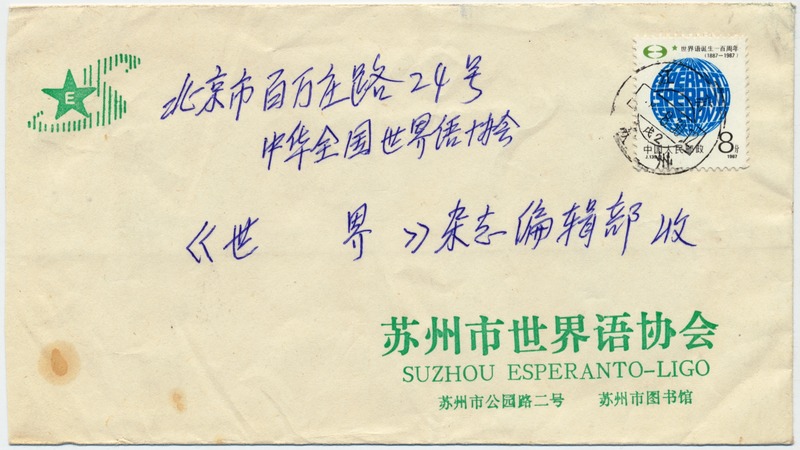 E
世界语诞生一百周年
(1887-1987)
中国人民邮政
8分
1987
北京市百万庄路24号
中华全国世界语协会
《世 界》杂志编辑部 收
苏州市世界语协会
SUZHOU ESPERANTO-LIGO
苏州市公园路二号 苏州市图书馆